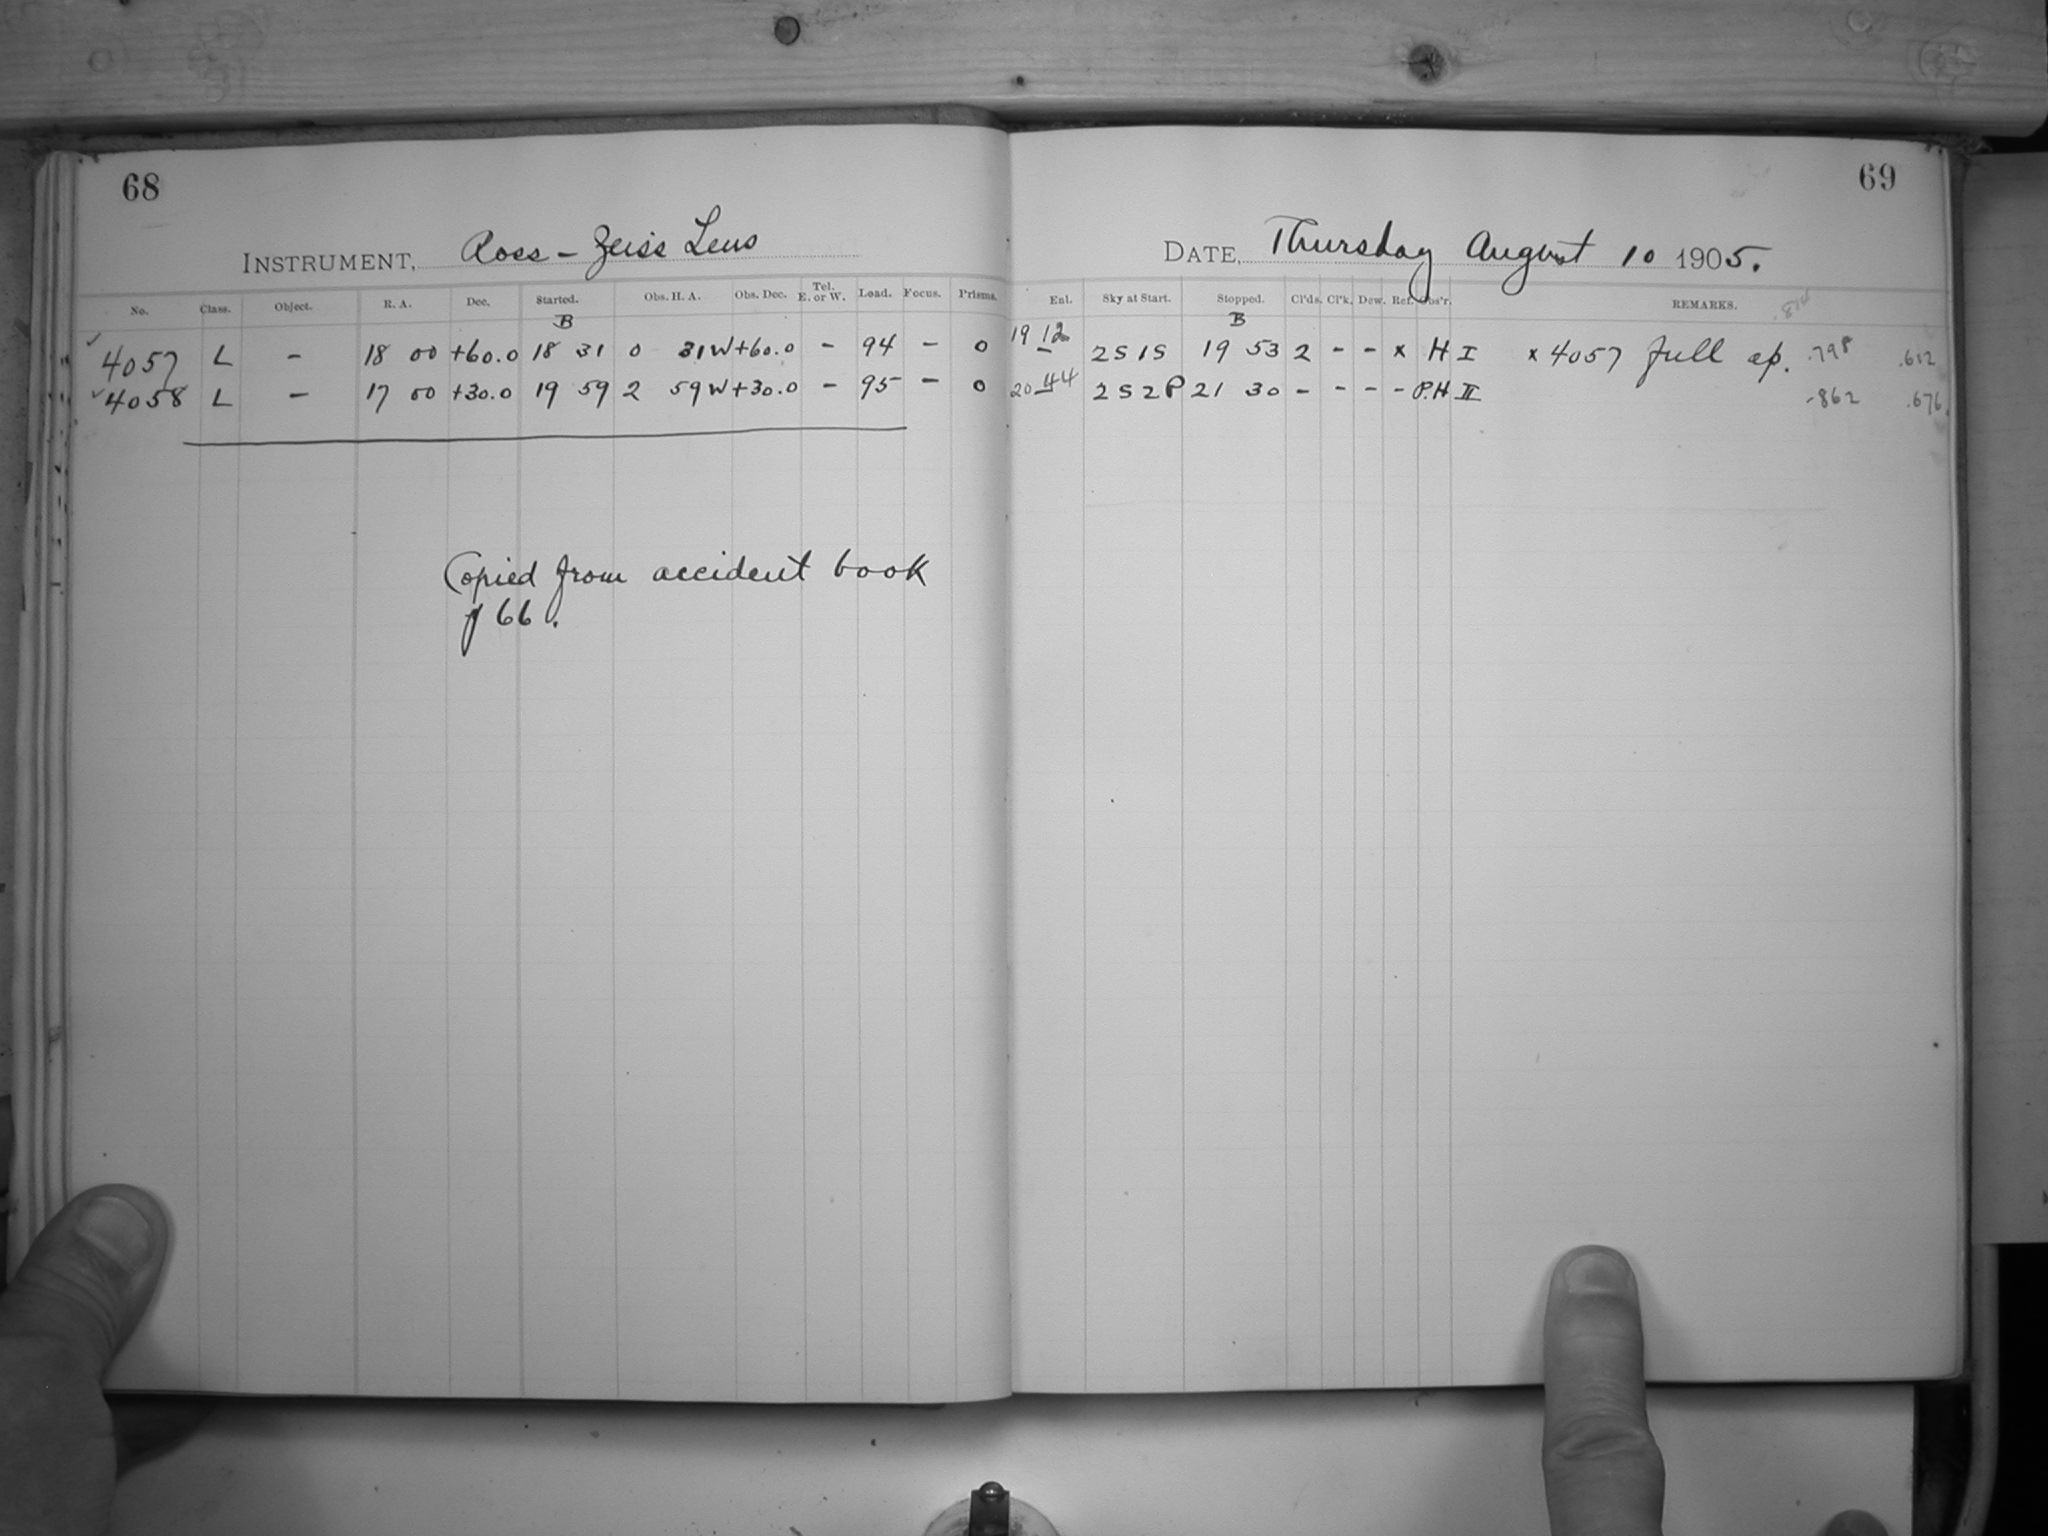 68
INSTRUMENT, Ross - Zeiss Lens
No. Class. Object. R. A. Dec. Started. Obs. H. A. Obs. Dec. Tel. E. or W. Lead. Focus. Prisms.
B
✓ 4057 L - 18 00 +60.0 18 31 0 31 W +60.0 - 94 - 0
✓ 4058 L - 17 00 +30.0 19 59 2 59 W +30.0 - 95 - 0
Copied from accident book
p 66.
69
DATE, Thursday August 10 1905.
Exl. Sky at Start. Stopped. Cl'ds. Cl'k. Dew. Ref. Obs'r. REMARKS.
B
19 12 2S 1S 19 53 2 - - x H I x 4057 full ap. .798 .612
20 44 2S 2P 21 30 - - - - P.H II .862 .676